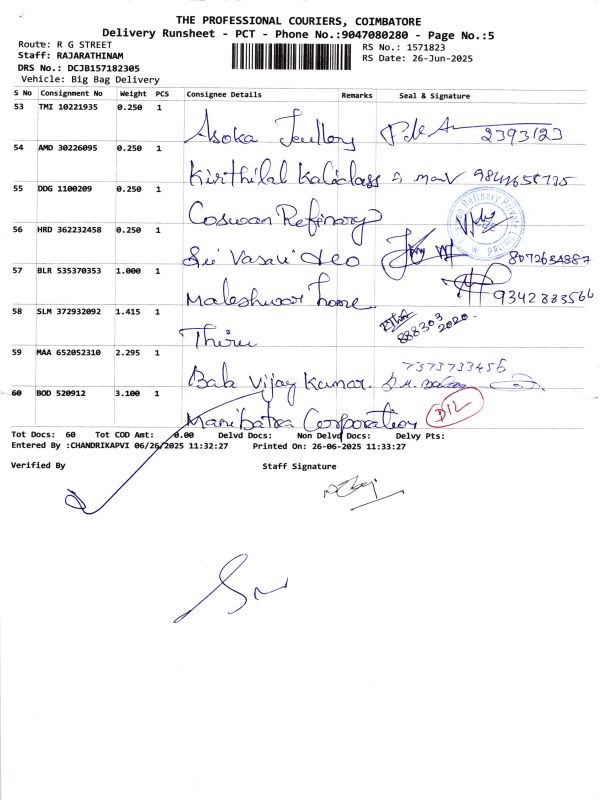 THE PROFESSIONAL COURIERS, COIMBATORE
Delivery Runsheet - PCT - Phone No.:9047080280 - Page No.:5
Route: R G STREET
Staff: RAJARATHINAM
DRS No.: DCJB157182305
Vehicle: Big Bag Delivery
RS No.: 1571823
RS Date: 26-Jun-2025
S No Consignment No Weight PCS Consignee Details Remarks Seal & Signature
53 TMI 10221935 0.250 1
Asoka 2393123
54 AMD 30226095 0.250 1
Kirthilal Kalidass
55 DDG 1100209 0.250 1
Coswan Refinery
56 HRD 362232458 0.250 1
Sri Vasavi 8072634887
57 BLR 535370353 1.000 1
Maleshwar home 9342333566
58 SLM 372932092 1.415 1
Thiru 888303 2020
59 MAA 652052310 2.295 1
7373733456
Bala Vijay Kumar
60 BOD 520912 3.100 1
Manibatra Corporation D/L
Tot Docs: 60 Tot COD Amt: 0.00 Delvd Docs: Non Delvd Docs: Delvy Pts:
Entered By :CHANDRIKAPVI 06/26/2025 11:32:27 Printed On: 26-06-2025 11:33:27
Verified By Staff Signature